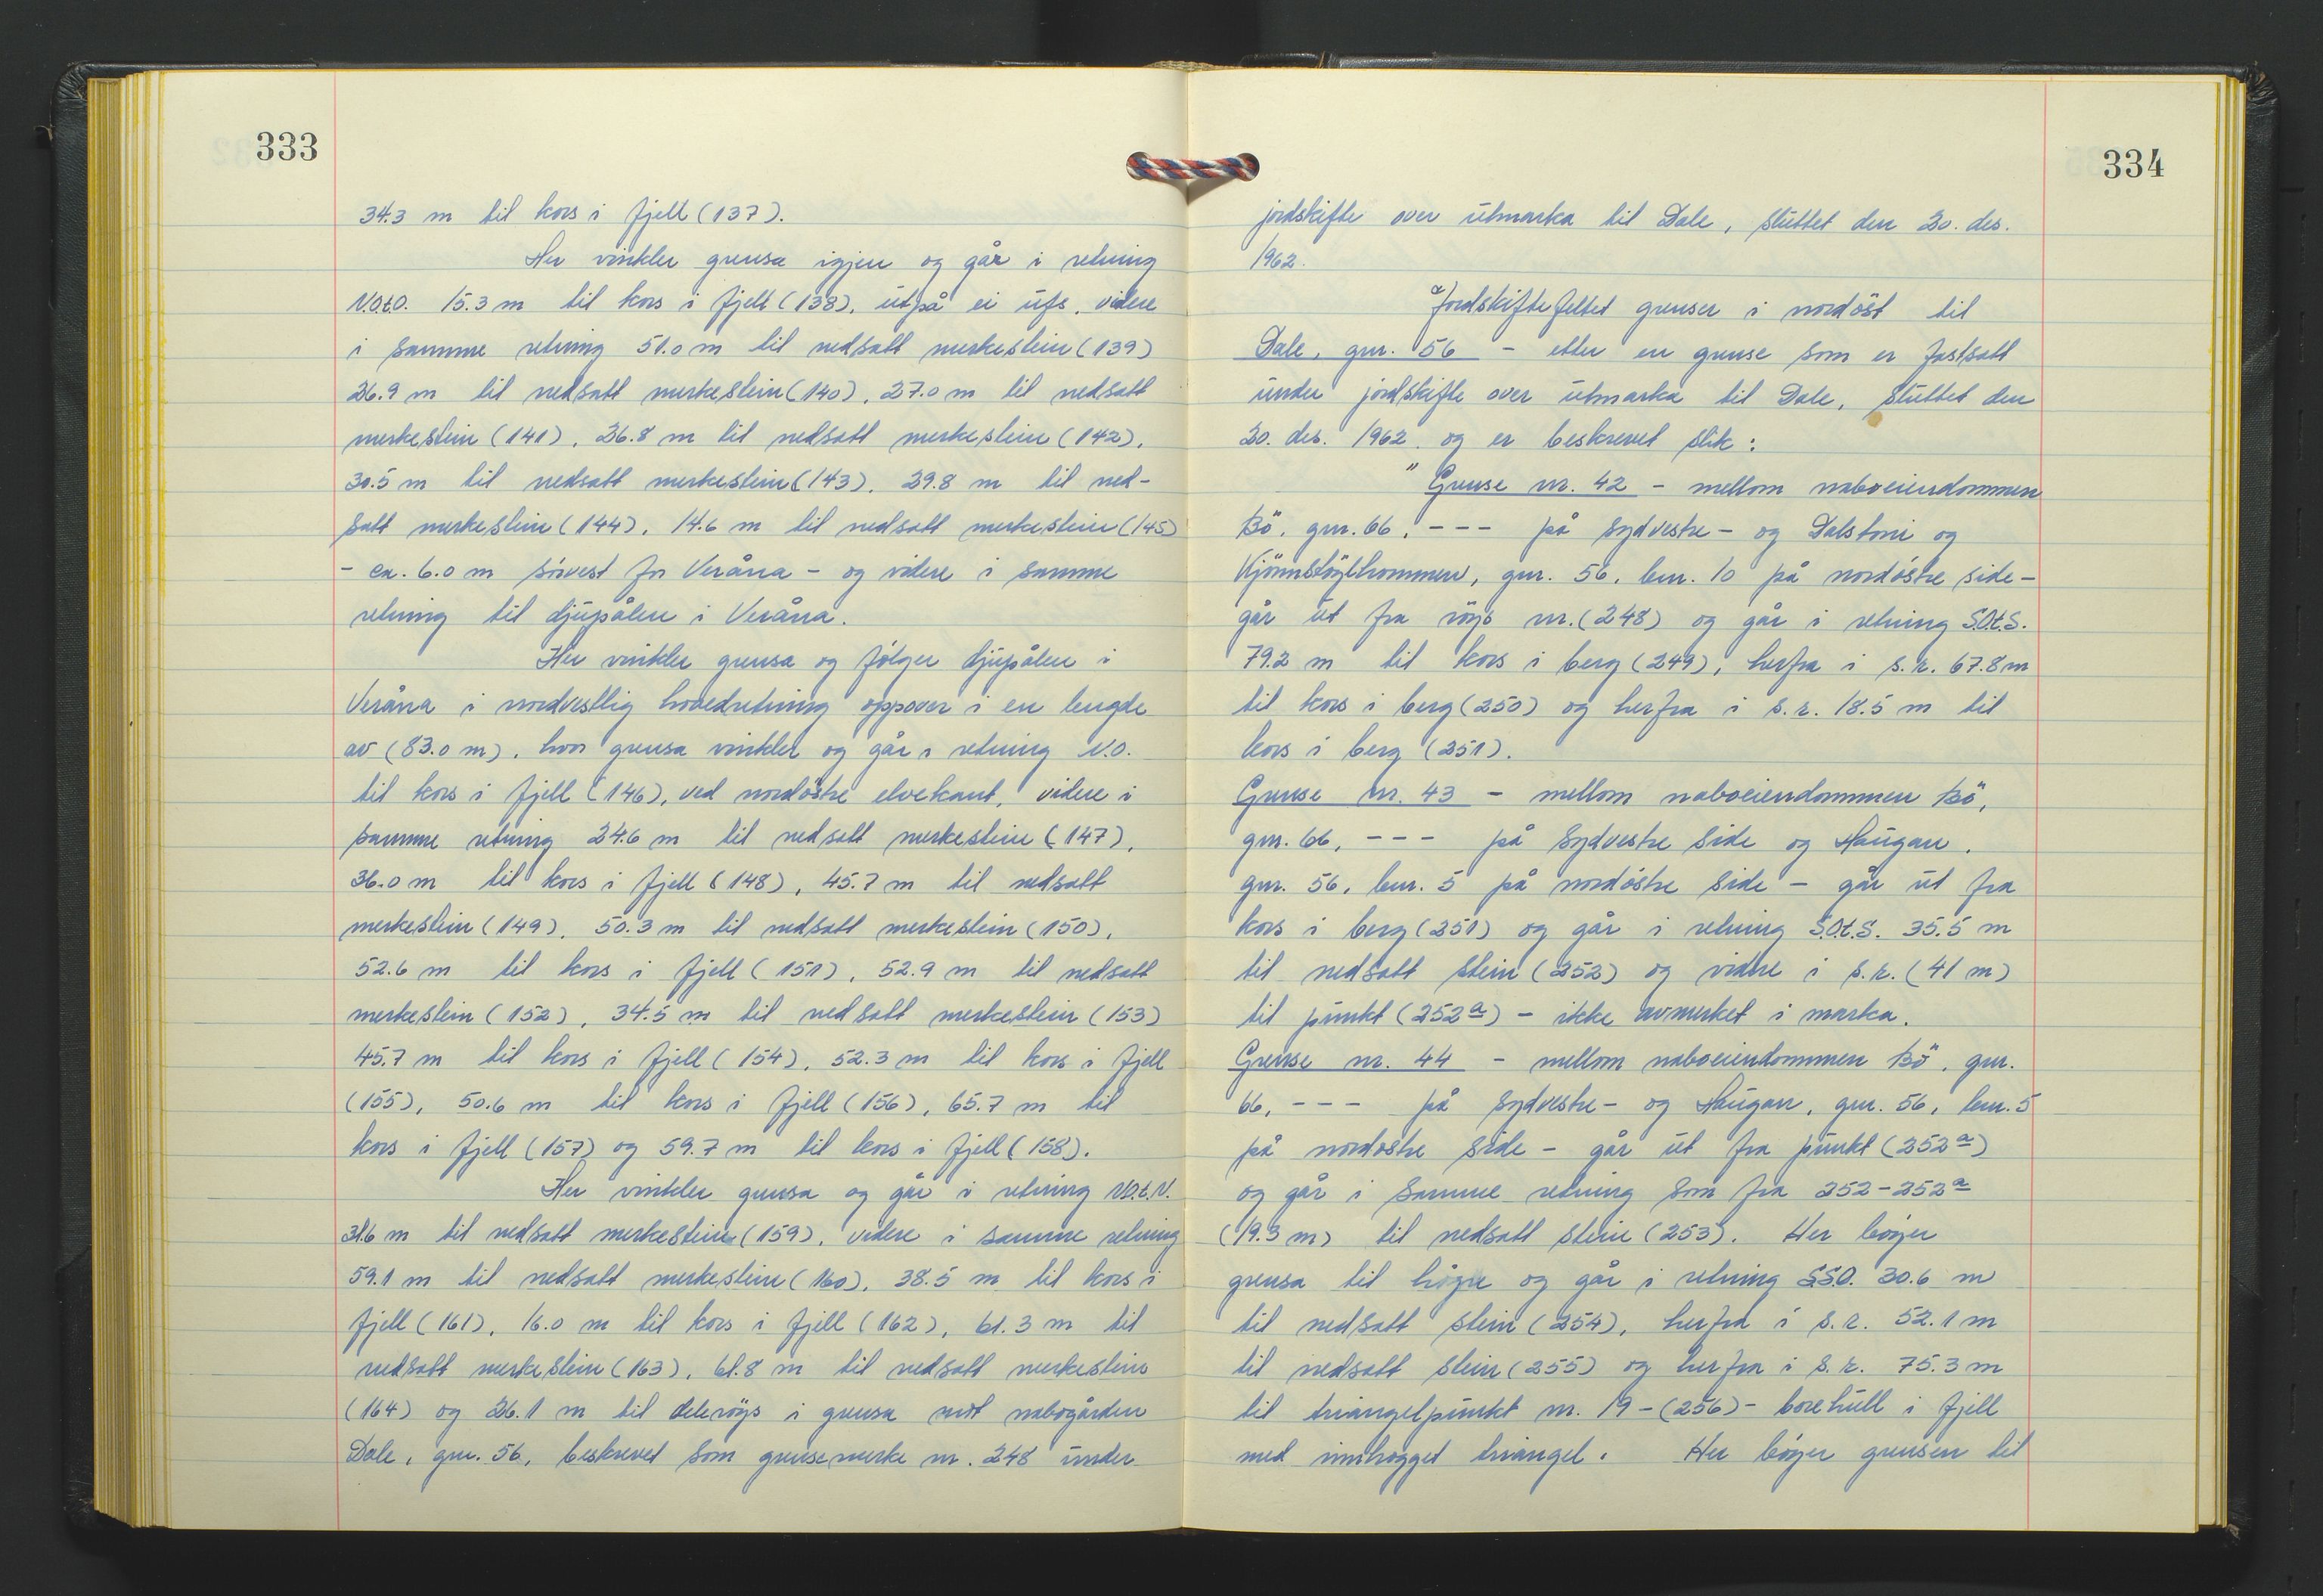 333
34.3 m til kors i fjell (137).
Her vinkler grensa igjen og går i retning
N.O.t.O. 15.3 m til kors i fjell (138), utpå ei ufs, videre
i samme retning 51.0 m til nedsatt merkestein (139)
26.9 m til nedsatt merkestein (140), 27.0 m til nedsatt
merkestein (141), 36.8 m til nedsatt merkestein (142),
30.5 m til nedsatt merkestein (143), 29.8 m til ned-
satt merkestein (144), 14.6 m til nedsatt merkestein (145)
- ca. 6.0 m sörvest for Veråna - og videre i samme
retning til djupålen i Veråna.
Her vinkler grensa og fölger djupålen i
Veråna i nordvestlig hovedretning oppover i en lengde
av (83.0 m), hvor grensa vinkler og går i retning N.O.
til kors i fjell (146), ved nordöstre elvekant, videre i
samme retning 24.6 m til nedsatt merkestein (147),
36.0 m til kors i fjell (148), 45.7 m til nedsatt
merkestein (149), 50.3 m til nedsatt merkestein (150),
52.6 m til kors i fjell (151), 52.9 m til nedsatt
merkestein (152), 34.5 m til nedsatt merkestein (153)
45.7 m til kors i fjell (154), 52.3 m til kors i fjell
(155), 50.6 m til kors i fjell (156), 65.7 m til
kors i fjell (157) og 59.7 m til kors i fjell (158).
Her vinkler grensa og går i retning N.O.t.N.
31.6 m til nedsatt merkestein (159), videre i samme retning
59.1 m til nedsatt merkestein (160), 38.5 m til kors i
fjell (161), 16.0 m til kors i fjell (162), 61.3 m til
nedsatt merkestein (163), 61.8 m til nedsatt merkestein
(164) og 26.1 m til deleröys i grensa mot nabogården
Dale, gnr. 56, beskrevet som grensemerke nr. 248 under
334
jordskifte over utmarka til Dale, sluttet den 20. des.
1962.
Jordskiftefeltet grenser i nordöst til
Dale, gnr. 56 - etter en grense som er fastsatt
under jordskifte over utmarka til Dale, sluttet den
20. des. 1962. og er beskrevet slik:
" Grense nr. 42 - mellom naboeiendommen
Bö, gnr. 66, --- på sydvestre - og Dalstoni og
Kjönnstöglhommen, gnr. 56, bnr. 10 på nordöstre side -
går ut fra röys nr. (248) og går i retning S.O.t.S.
79.2 m til kors i berg (249), herfra i s.r. 67.8 m
til kors i berg (250) og herfra i s.r. 18.5 m til
kors i berg (251).
Grense nr. 43 - mellom naboeiendommen Bö,
gnr. 66, --- på sydvestre side og Haugan,
gnr. 56, bnr. 5 på nordöstre side - går ut fra
kors i berg (251) og går i retning S.O.t.S. 35.5 m
til nedsatt stein (252) og vidre i s.r. (41 m)
til punkt (252a) - ikke avmerket i marka.
Grense nr. 44 - mellom naboeiendommen Bö, gnr.
66, --- på sydvestre - og Haugan, gnr. 56, bnr. 5
på nordöstre side - går ut fra punkt (252a)
og går i samme retning som fra 252-252a
(19.3 m) til nedsatt stein (253). Her böyer
grensa til högre og går i retning S.S.O. 30.6 m
til nedsatt stein (254), herfra i s.r. 52.1 m
til nedsatt stein (255) og herfra i s.r. 75.3 m
til triangelpunkt nr. 19 - (256) - borehull i fjell
med innhogget triangel. Her böyer grensen til